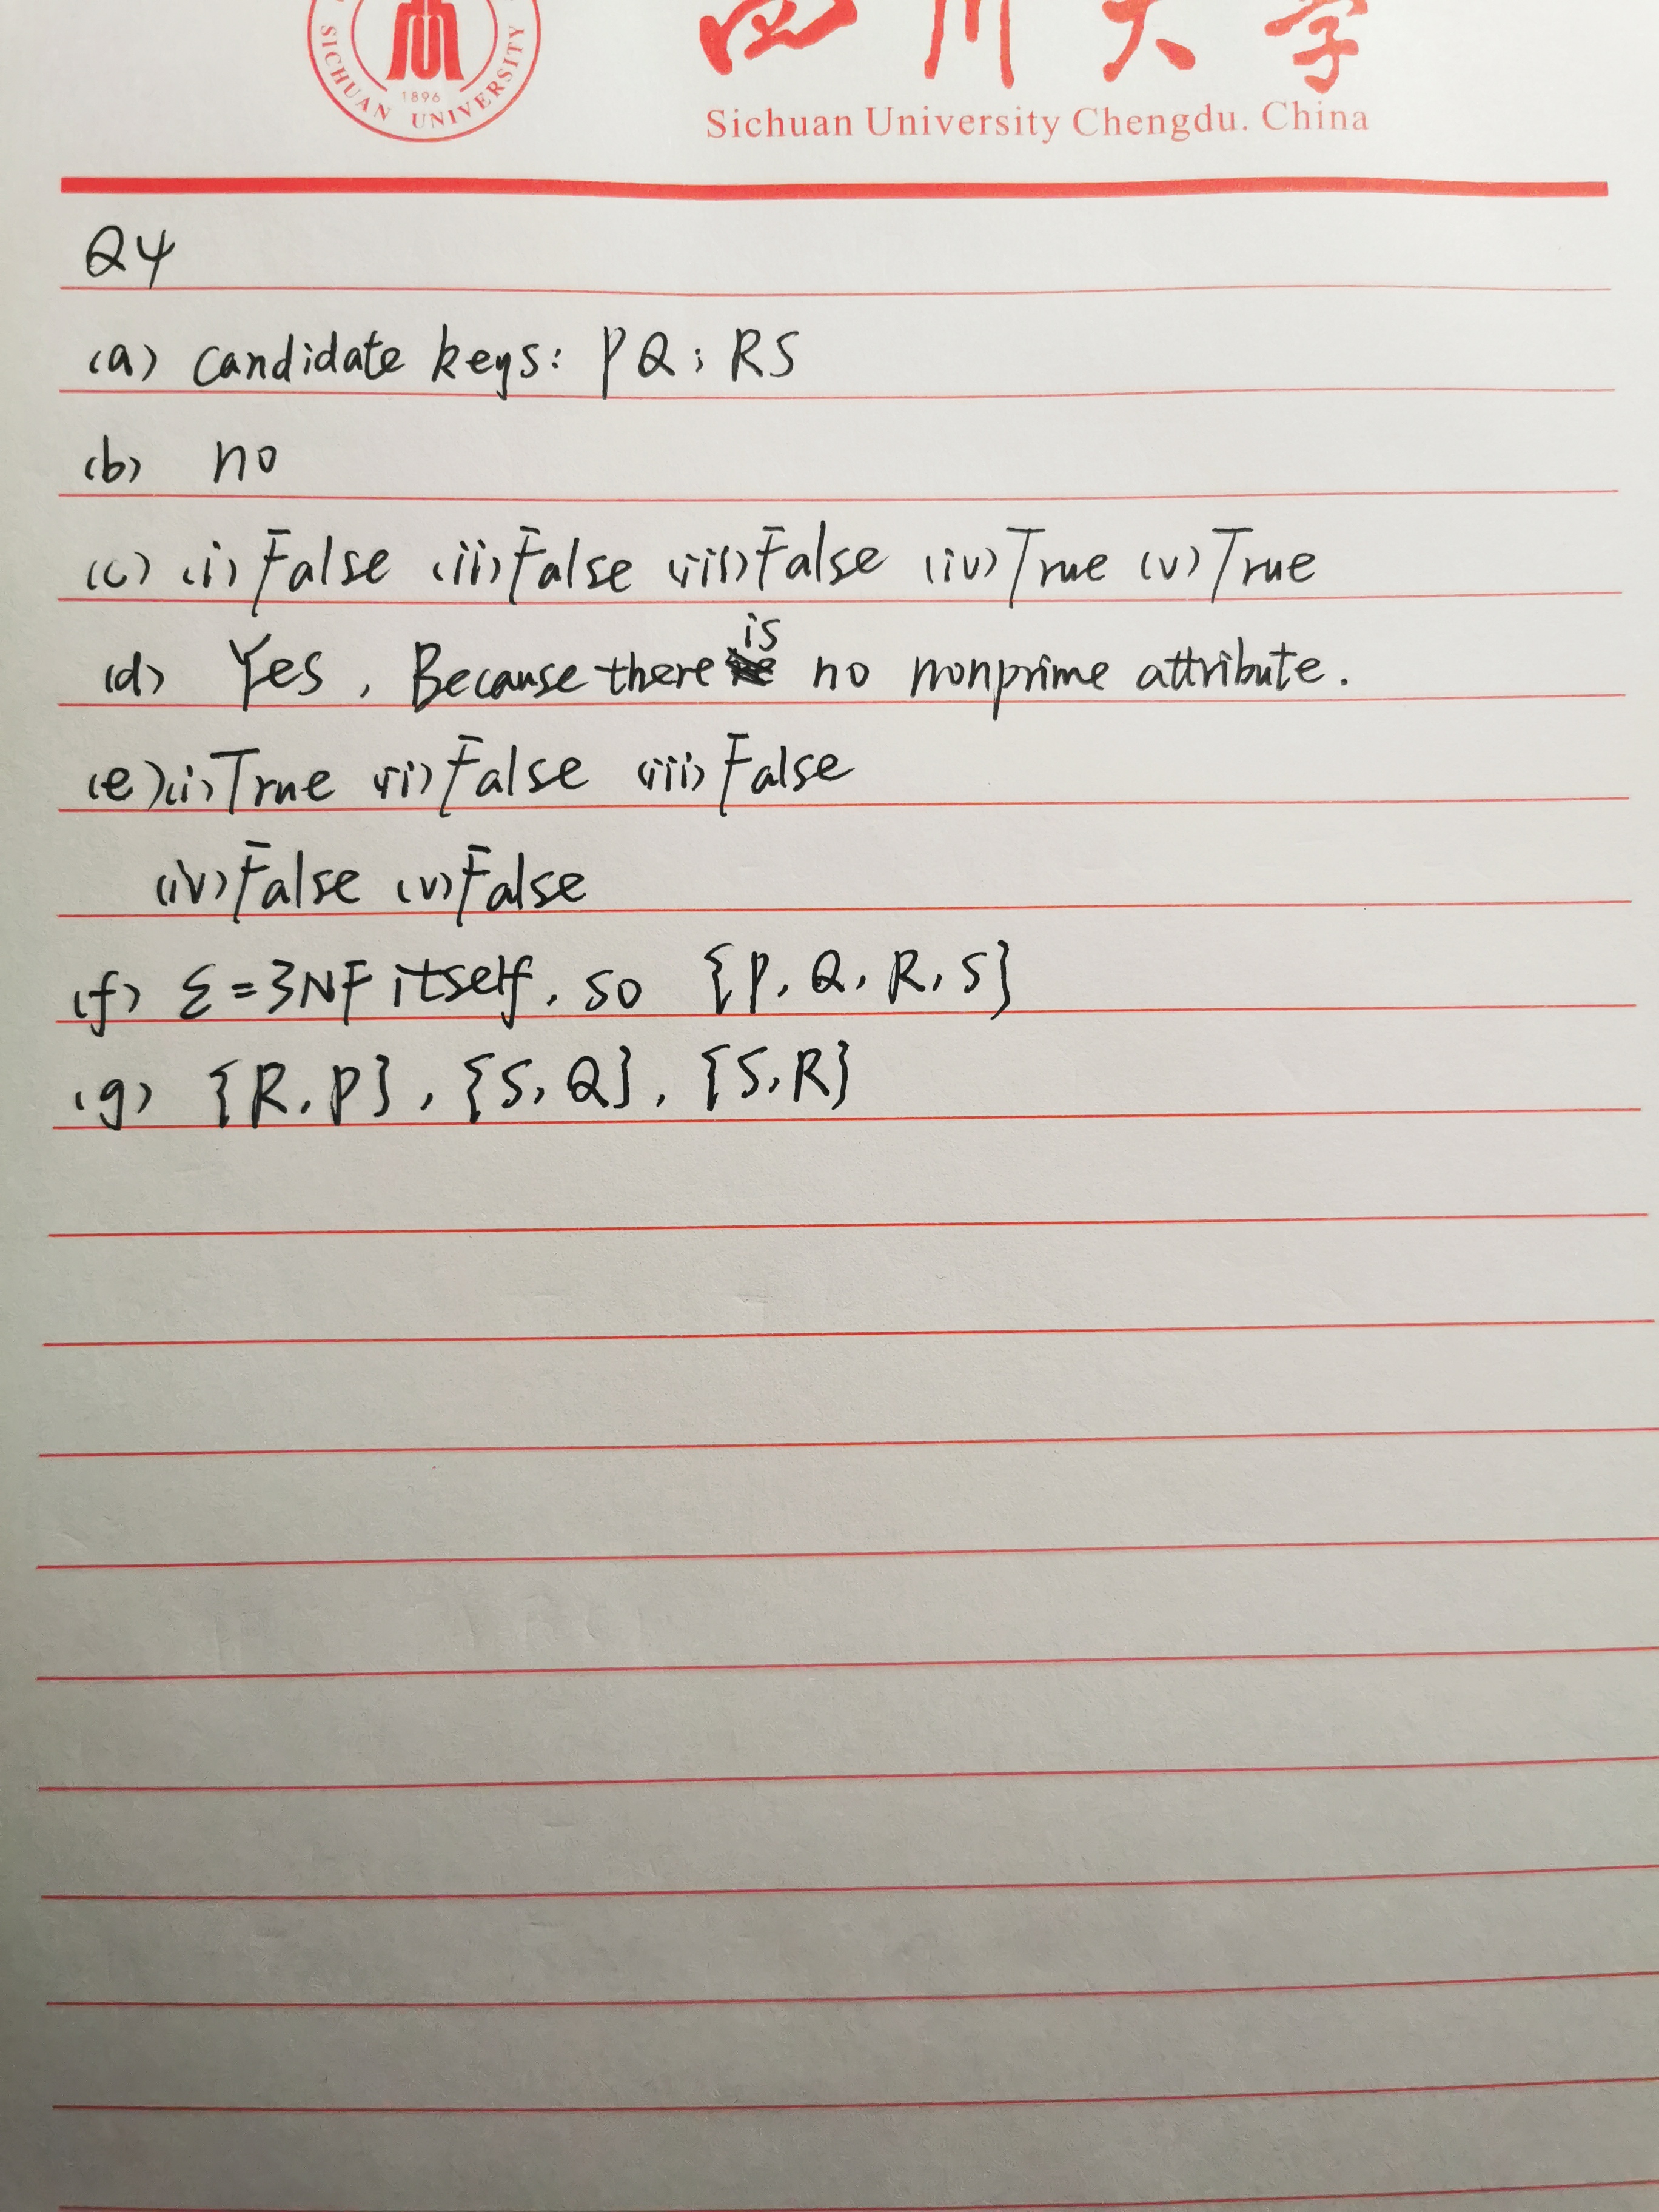 四川大学
SICHUAN UNIVERSITY
1896
Sichuan University Chengdu. China
Q4
(a) candidate keys: PQ; RS
(b) no
(c) (i) False (ii) False (iii) False (iv) True (v) True
(d) Yes, Because there is no nonprime attribute.
(e) (i) True (ii) False (iii) False
(iv) False (v) False
(f) Σ = 3NF itself, so {P, Q, R, S}
(g) {R, P}, {S, Q}, {S, R}